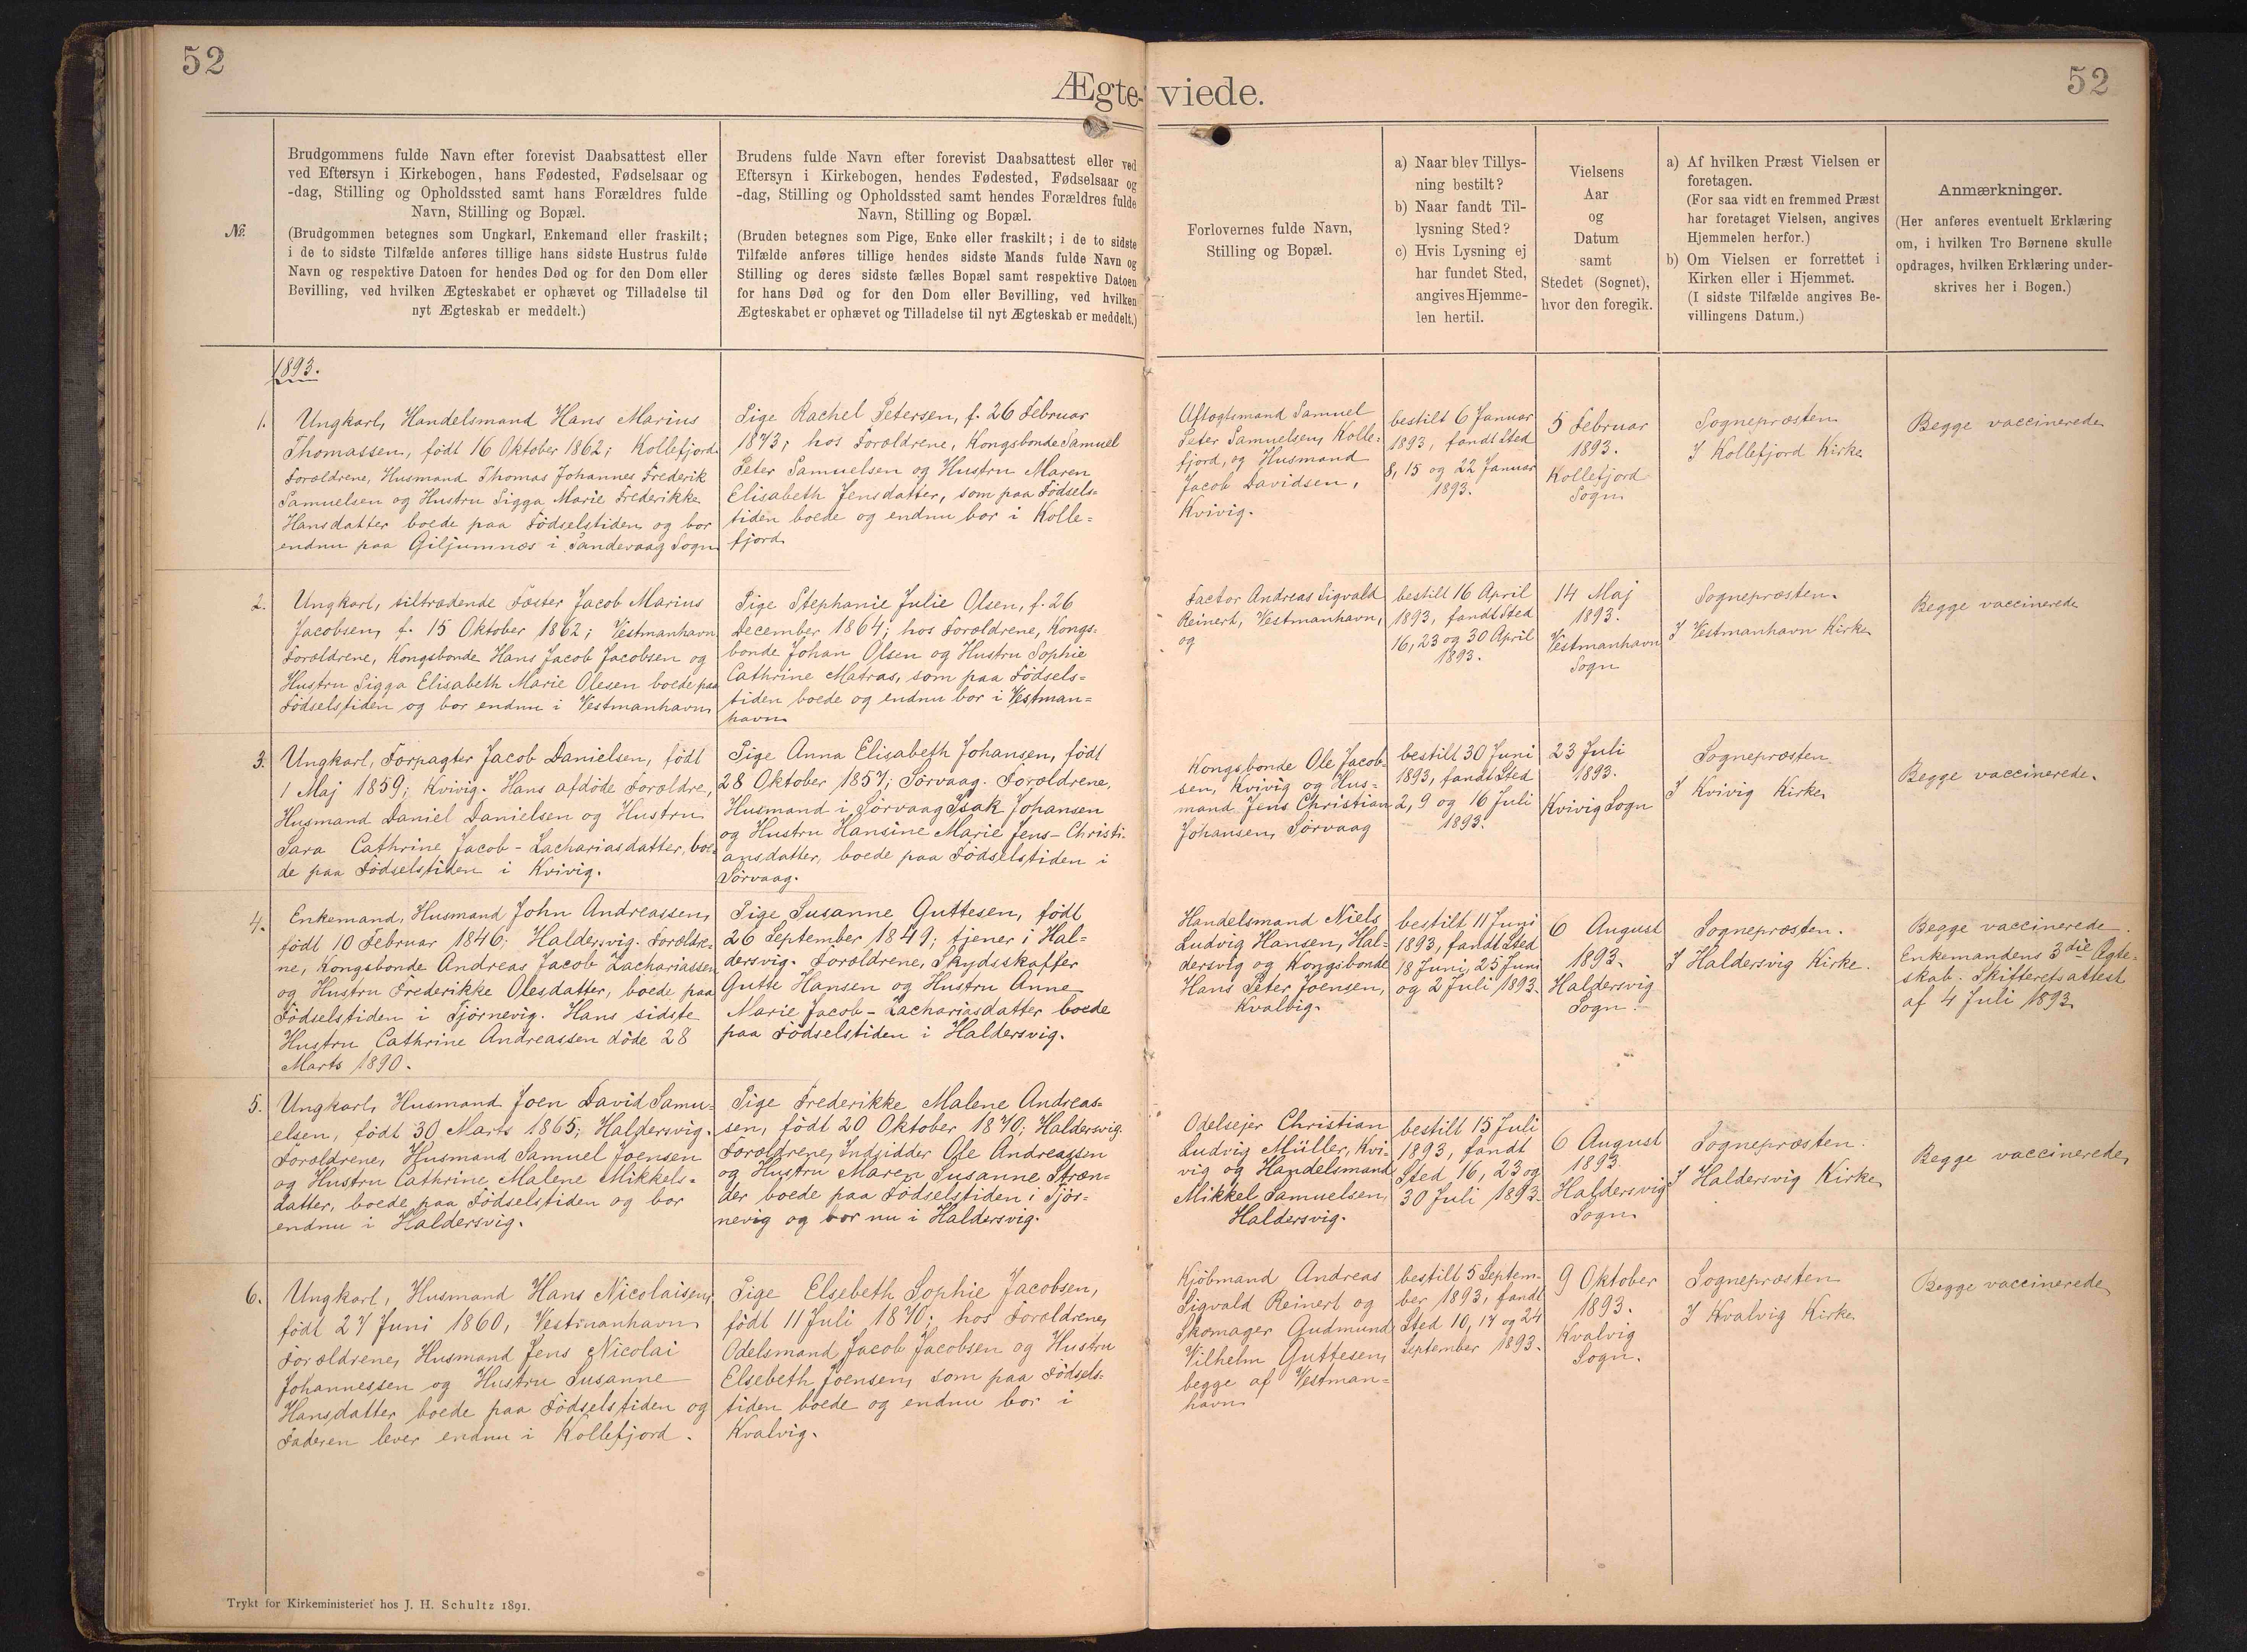 52
52
Ægte-viede.
№
Brudgommens fulde Navn efter forevist Daabsattest eller
ved Eftersyn i Kirkebogen, hans Fødested, Fødselsaar og
-dag, Stilling og Opholdssted samt hans Forældres fulde
Navn, Stilling og Bopæl.
(Brudgommen betegnes som Ungkarl, Enkemand eller fraskilt;
i de to sidste Tilfælde anføres tillige hans sidste Hustrus fulde
Navn og respektive Datoen for hendes Død og for den Dom eller
Bevilling, ved hvilken Ægteskabet er ophævet og Tilladelse til
nyt Ægteskab er meddelt.)
Brudens fulde Navn efter forevist Daabsattest eller ved
Eftersyn i Kirkebogen, hendes Fødested, Fødselsaar og
-dag, Stilling og Opholdssted samt hendes Forældres fulde
Navn, Stilling og Bopæl.
(Bruden betegnes som Pige, Enke eller fraskilt; i de to sidste
Tilfælde anføres tillige hendes sidste Mands fulde Navn og
Stilling og deres sidste fælles Bopæl samt respektive Datoen
for hans Død og for den Dom eller Bevilling, ved hvilken
Ægteskabet er ophævet og Tilladelse til nyt Ægteskab er meddelt.)
Forlovernes fulde Navn,
Stilling og Bopæl.
a) Naar blev Tillys-
ning bestilt?
b) Naar fandt Til-
lysning Sted?
c) Hvis Lysning ej
har fundet Sted,
angives Hjemme-
len hertil.
Vielsens
Aar
og
Datum
samt
Stedet (Sognet),
hvor den foregik.
a) Af hvilken Præst Vielsen er
foretagen.
(For saa vidt en fremmed Præst
har foretaget Vielsen, angives
Hjemmelen herfor.)
b) Om Vielsen er forrettet i
Kirken eller i Hjemmet.
(I sidste Tilfælde angives Be-
villingens Datum.)
Anmærkninger.
(Her anføres eventuelt Erklæring
om, i hvilken Tro Børnene skulle
opdrages, hvilken Erklæring under-
skrives her i Bogen.)
1893.
1.
Ungkarl, Handelsmand Hans Marius
Thomassen, født 16 Oktober 1862; Kollefjord.
Forældrene, Husmand Thomas Johannes Frederik
Samuelsen og Hustru Sigga Marie Frederikke
Hansdatter boede paa Fødselstiden og bor
endnu paa Giljumnæs i Sandevaag Sogn
Pige Rachel Petersen, f. 26 Februar
1873; hos Forældrene, Kongsbonde Samuel
Peter Samuelsen og Hustru Maren
Elisabeth Jensdatter, som paa Fødsels=
tiden boede og endnu bor i Kolle=
fjord.
Aftagtsmand Samuel
Peter Samuelsen, Kolle=
fjord, og Husmand
Jacob Davidsen,
Kvivig.
bestilt 6 Januar
1893, fandt Sted
8, 15 og 22 Januar
1893.
5 Februar
1893.
Kollefjord
Sogn
Sognepræsten
I Kollefjord Kirke
Begge vaccinerede
2.
Ungkarl, tiltrædende Fæster Jacob Marius
Jacobsen, f. 15 Oktober 1862; Vestmanhavn.
Forældrene, Kongsbonde Hans Jacob Jacobsen og
Hustru Sigga Elisabeth Marie Olesen boede paa
Fødselstiden og bor endnu i Vestmanhavn
Pige Stephanie Julie Olsen, f. 26
December 1864; hos Forældrene, Kongs=
bonde Johan Olsen og Hustru Sophie
Cathrine Matras, som paa Fødsels=
tiden boede og endnu bor i Vestman=
havn
Factor Andreas Sigvald
Reinert, Vestmanhavn,
og
bestilt 16 April
1893, fandt Sted
16, 23 og 30 April
1893.
14 Maj
1893.
Vestmanhavn
Sogn
Sognepræsten.
I Vestmanhavn Kirke
Begge vaccinerede
3.
Ungkarl, Forpagter Jacob Danielsen, født
1 Maj 1859; Kvivig. Hans afdøde Forældre,
Husmand Daniel Danielsen og Hustru
Sara Cathrine Jacob-Zachariasdatter, boe=
de paa Fødselstiden i Kvivig.
Pige Anna Elisabeth Johansen, født
28 Oktober 1857; Sørvaag. Forældrene,
Husmand i Sørvaag Isak Johansen
og Hustru Hansine Marie Jens-Christi-
ansdatter, boede paa Fødselstiden i
Sørvaag.
Kongsbonde Ole Jacob=
sen, Kvivig og Hus=
mand Jens Christian
Johansen, Sørvaag
bestilt 30 Juni
1893, fandt Sted
2, 9 og 16 Juli
1893.
23 Juli
1893.
Kvivig Sogn
Sognepræsten
I Kvivig Kirke
Begge vaccinerede.
4.
Enkemand, Husmand John Andreassen,
født 10 Februar 1846; Haldersvig. Forældre=
ne, Kongsbonde Andreas Jacob Zachariassen
og Hustru Frederikke Olesdatter, boede paa
Fødselstiden i Tjørnevig. Hans sidste
Hustru Cathrine Andreassen døde 28
Marts 1890.
Pige Susanne Guttesen, født
26 September 1849; tjener i Hal=
dersvig. Forældrene, Skydsskaffer
Gutte Hansen og Hustru Anne
Marie Jacob-Zachariasdatter boede
paa Fødselstiden i Haldersvig.
Handelsmand Niels
Ludvig Hansen, Hal=
dersvig og Kongsbonde
Hans Peter Joensen,
Kvalvig.
bestilt 11 Juni
1893, fandt Sted
18 Juni, 25 Juni
og 2 Juli 1893.
6 August
1893.
Haldersvig
Sogn.
Sognepræsten.
I Haldersvig Kirke.
Begge vaccinerede.
Enkemandens 3die Ægte=
skab. Skifteretsattest
af 4 Juli 1893
5.
Ungkarl, Husmand Joen David Samu=
elsen, født 30 Marts 1865; Haldersvig.
Forældrene, Husmand Samuel Joensen
og Hustru Cathrine Malene Mikkels=
datter, boede paa Fødselstiden og bor
endnu i Haldersvig.
Pige Frederikke Malene Andreas=
sen, født 20 Oktober 1870; Haldersvig.
Forældrene, Indsidder Ole Andreassen
og Hustru Maren Susanne Stræn=
der boede paa Fødselstiden i Tjør=
nevig og bor nu i Haldersvig.
Odelsejer Christian
Ludvig Müller, Kvi=
vig og Handelsmand
Mikkel Samuelsen,
Haldersvig.
bestilt 15 Juli
1893, fandt
Sted 16, 23 og
30 Juli 1893.
6 August
1893.
Haldersvig
Sogn
Sognepræsten.
I Haldersvig Kirke
Begge vaccinerede
6.
Ungkarl, Husmand Hans Nicolaisen,
født 27 Juni 1860, Vestmanhavn
Forældrene, Husmand Jens Nicolai
Johannessen og Hustru Susanne
Hansdatter boede paa Fødselstiden og
Faderen lever endnu i Kollefjord.
Pige Elsebeth Sophie Jacobsen,
født 11 Juli 1870; hos Forældrene,
Odelsmand Jacob Jacobsen og Hustru
Elsebeth Joensen, som paa Fødsels=
tiden boede og endnu bor i
Kvalvig.
Kjøbmand Andreas
Sigvald Reinert og
Skomager Gudmund
Vilhelm Guttesen,
begge af Vestman=
havn
bestilt 5 Septem-
ber 1893, fandt
Sted 10, 17 og 24
September 1893.
9 Oktober
1893.
Kvalvig
Sogn.
Sognepræsten
I Kvalvig Kirke
Begge vaccinerede
Trykt for Kirkeministeriet hos J. H. Schultz 1891.